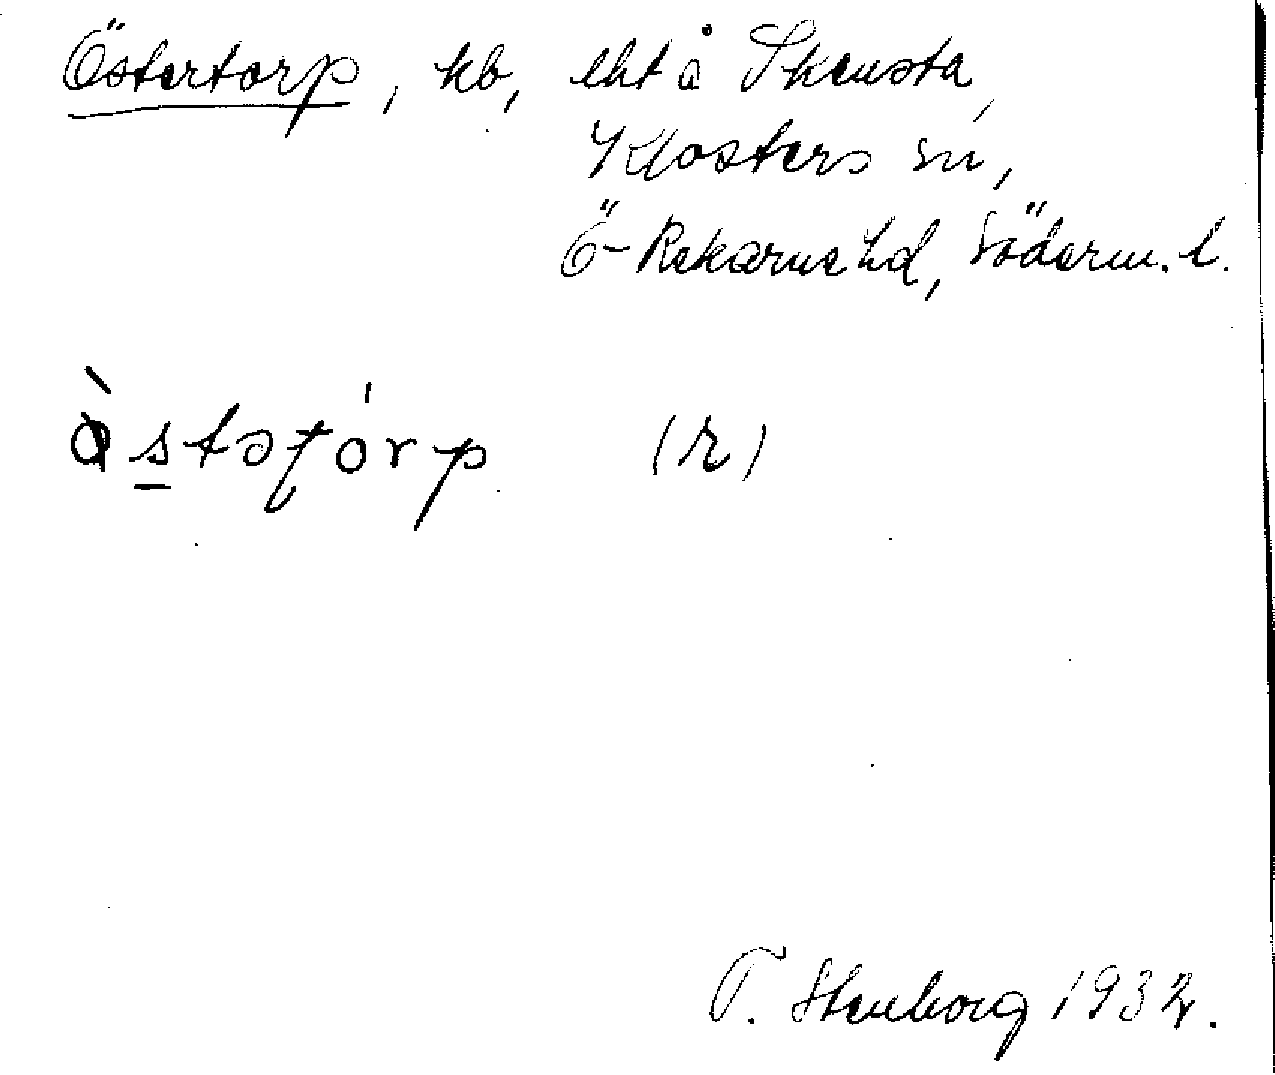 Östertorp, kb, lht å Skensta,
Klosters sn,
Ö-Rekarne hd, Söderm. l.
(r)
T. Stenborg 1932.